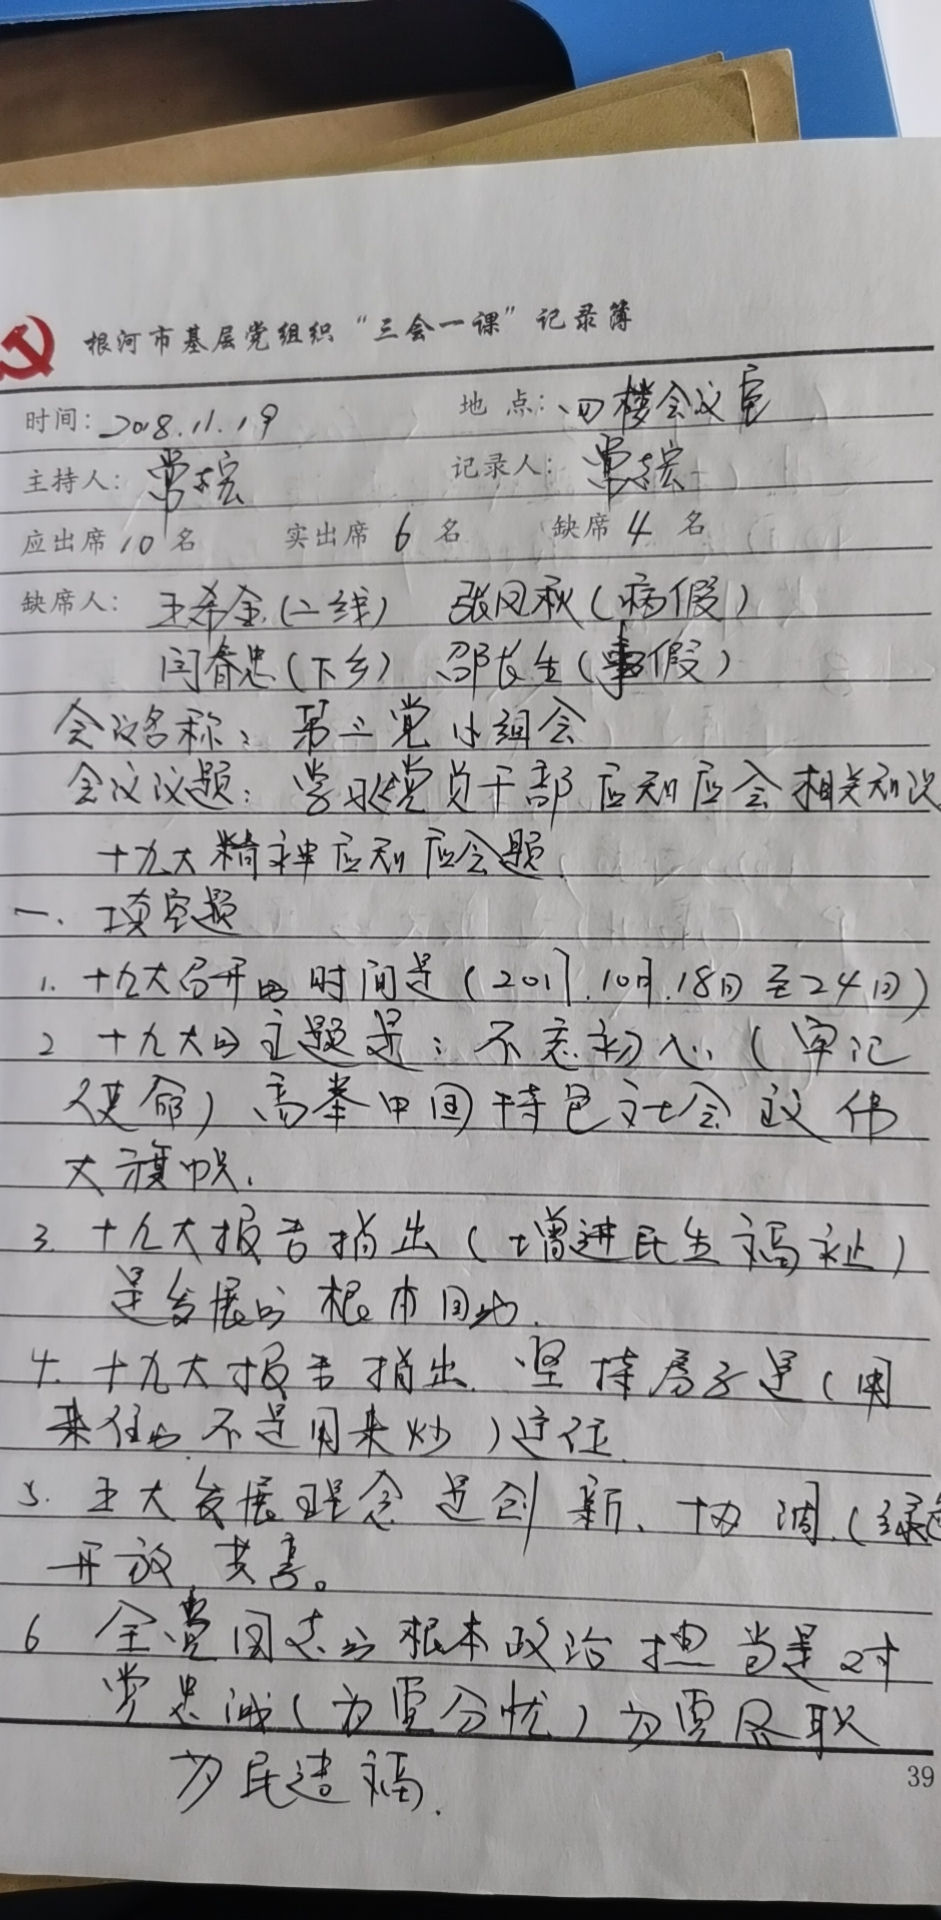 根河市基层党组织“三会一课”记录簿
时间：2018.11.19 地点：四楼会议室
主持人：常宏 记录人：常宏
应出席10名 实出席6名 缺席4名
缺席人：王希金（二线） 张凤秋（病假）
闫春忠（下乡） 邵长生（事假）
会议名称：第三党小组会
会议议题：学习党员干部应知应会相关知识
十九大精神应知应会题.
一、填空题
1. 十九大召开的时间是（2017.10月.18日至24日）
2 十九大的主题是：不忘初心（牢记
使命）高举中国特色社会主义伟
大旗帜.
3. 十九大报告指出（增进民生福祉）
是发展的根本目的.
4. 十九大报告指出.坚持房子是（用
来住的 不是用来炒）定位
5. 五大发展理念是创新、协调.（绿色
开放 共享。
6 全党同志的根本政治担当是对
党忠诚（为党分忧）为党尽职
为民造福.
39